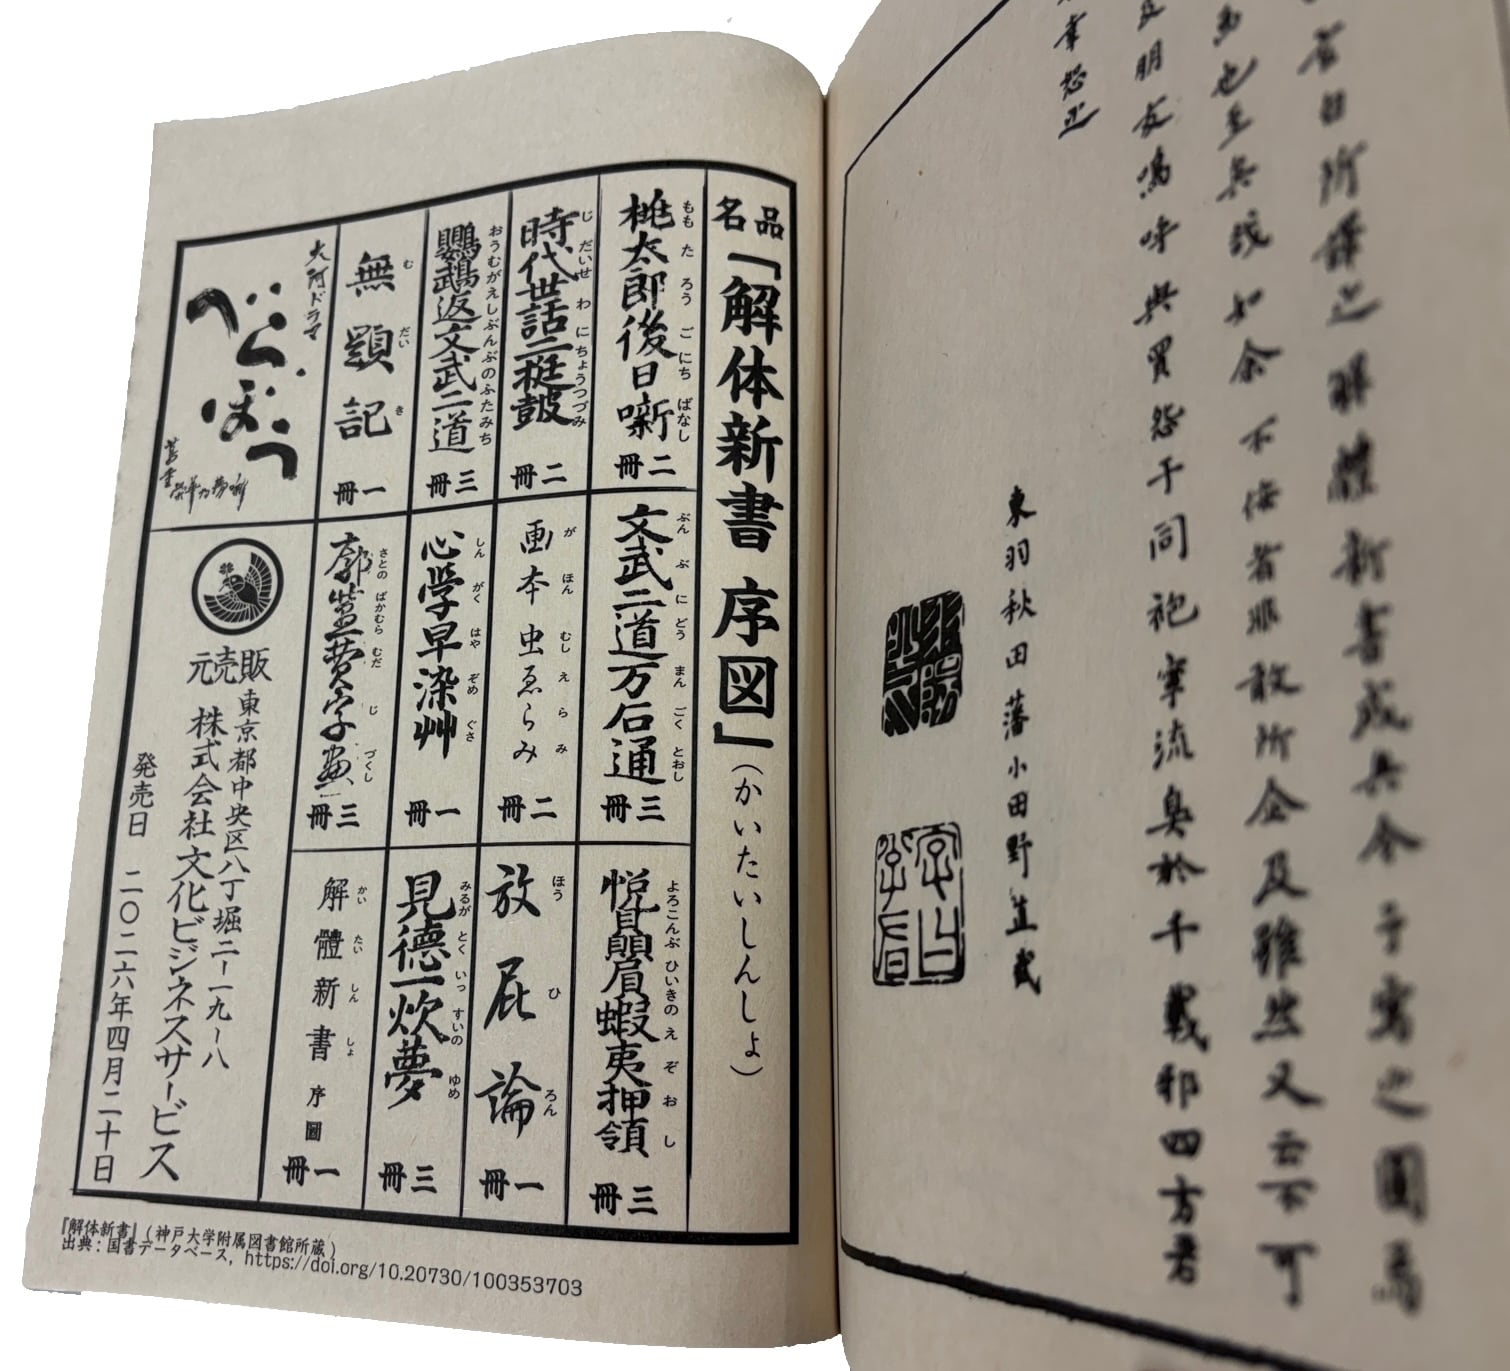 所譯之解體新書成其令予寫之圖焉
也至矣哉如余不佞者非敢所企及雖然又云不可
及朋友嗚呼與買怨于同袍寧流臭於千載邪四方君
幸恕之
東羽秋田藩小田野直武
名品「解体新書 序図」(かいたいしんしょ)
桃太郎後日噺 ももたろうごにちばなし 二冊
文武二道万石通 ぶんぶにどうまんごくとおし 三冊
悦贔屓蝦夷押領 よろこんぶひいきのえぞおし 三冊
時代世話二挺鼓 じだいせわにちょうつづみ 二冊
画本虫ゑらみ がほんむしえらみ 二冊
放屁論 ほうひろん 一冊
鸚鵡返文武二道 おうむがえしぶんぶのふたみち 三冊
心学早染艸 しんがくはやぞめぐさ 一冊
見徳一炊夢 みるがとくいっすいのゆめ 三冊
無題記 むだいき 一冊
廓𦽳費字盡 さとのばかむらむだじづくし 三冊
解體新書 かいたいしんしょ 序圖 一冊
大河ドラマ
べらぼう
蔦重栄華乃夢噺
販売元
東京都中央区八丁堀二ー一九ー八
株式会社文化ビジネスサービス
発売日 二〇二六年四月二十日
『解体新書』(神戸大学附属図書館所蔵)
出典：国書データベース, https://doi.org/10.20730/100353703